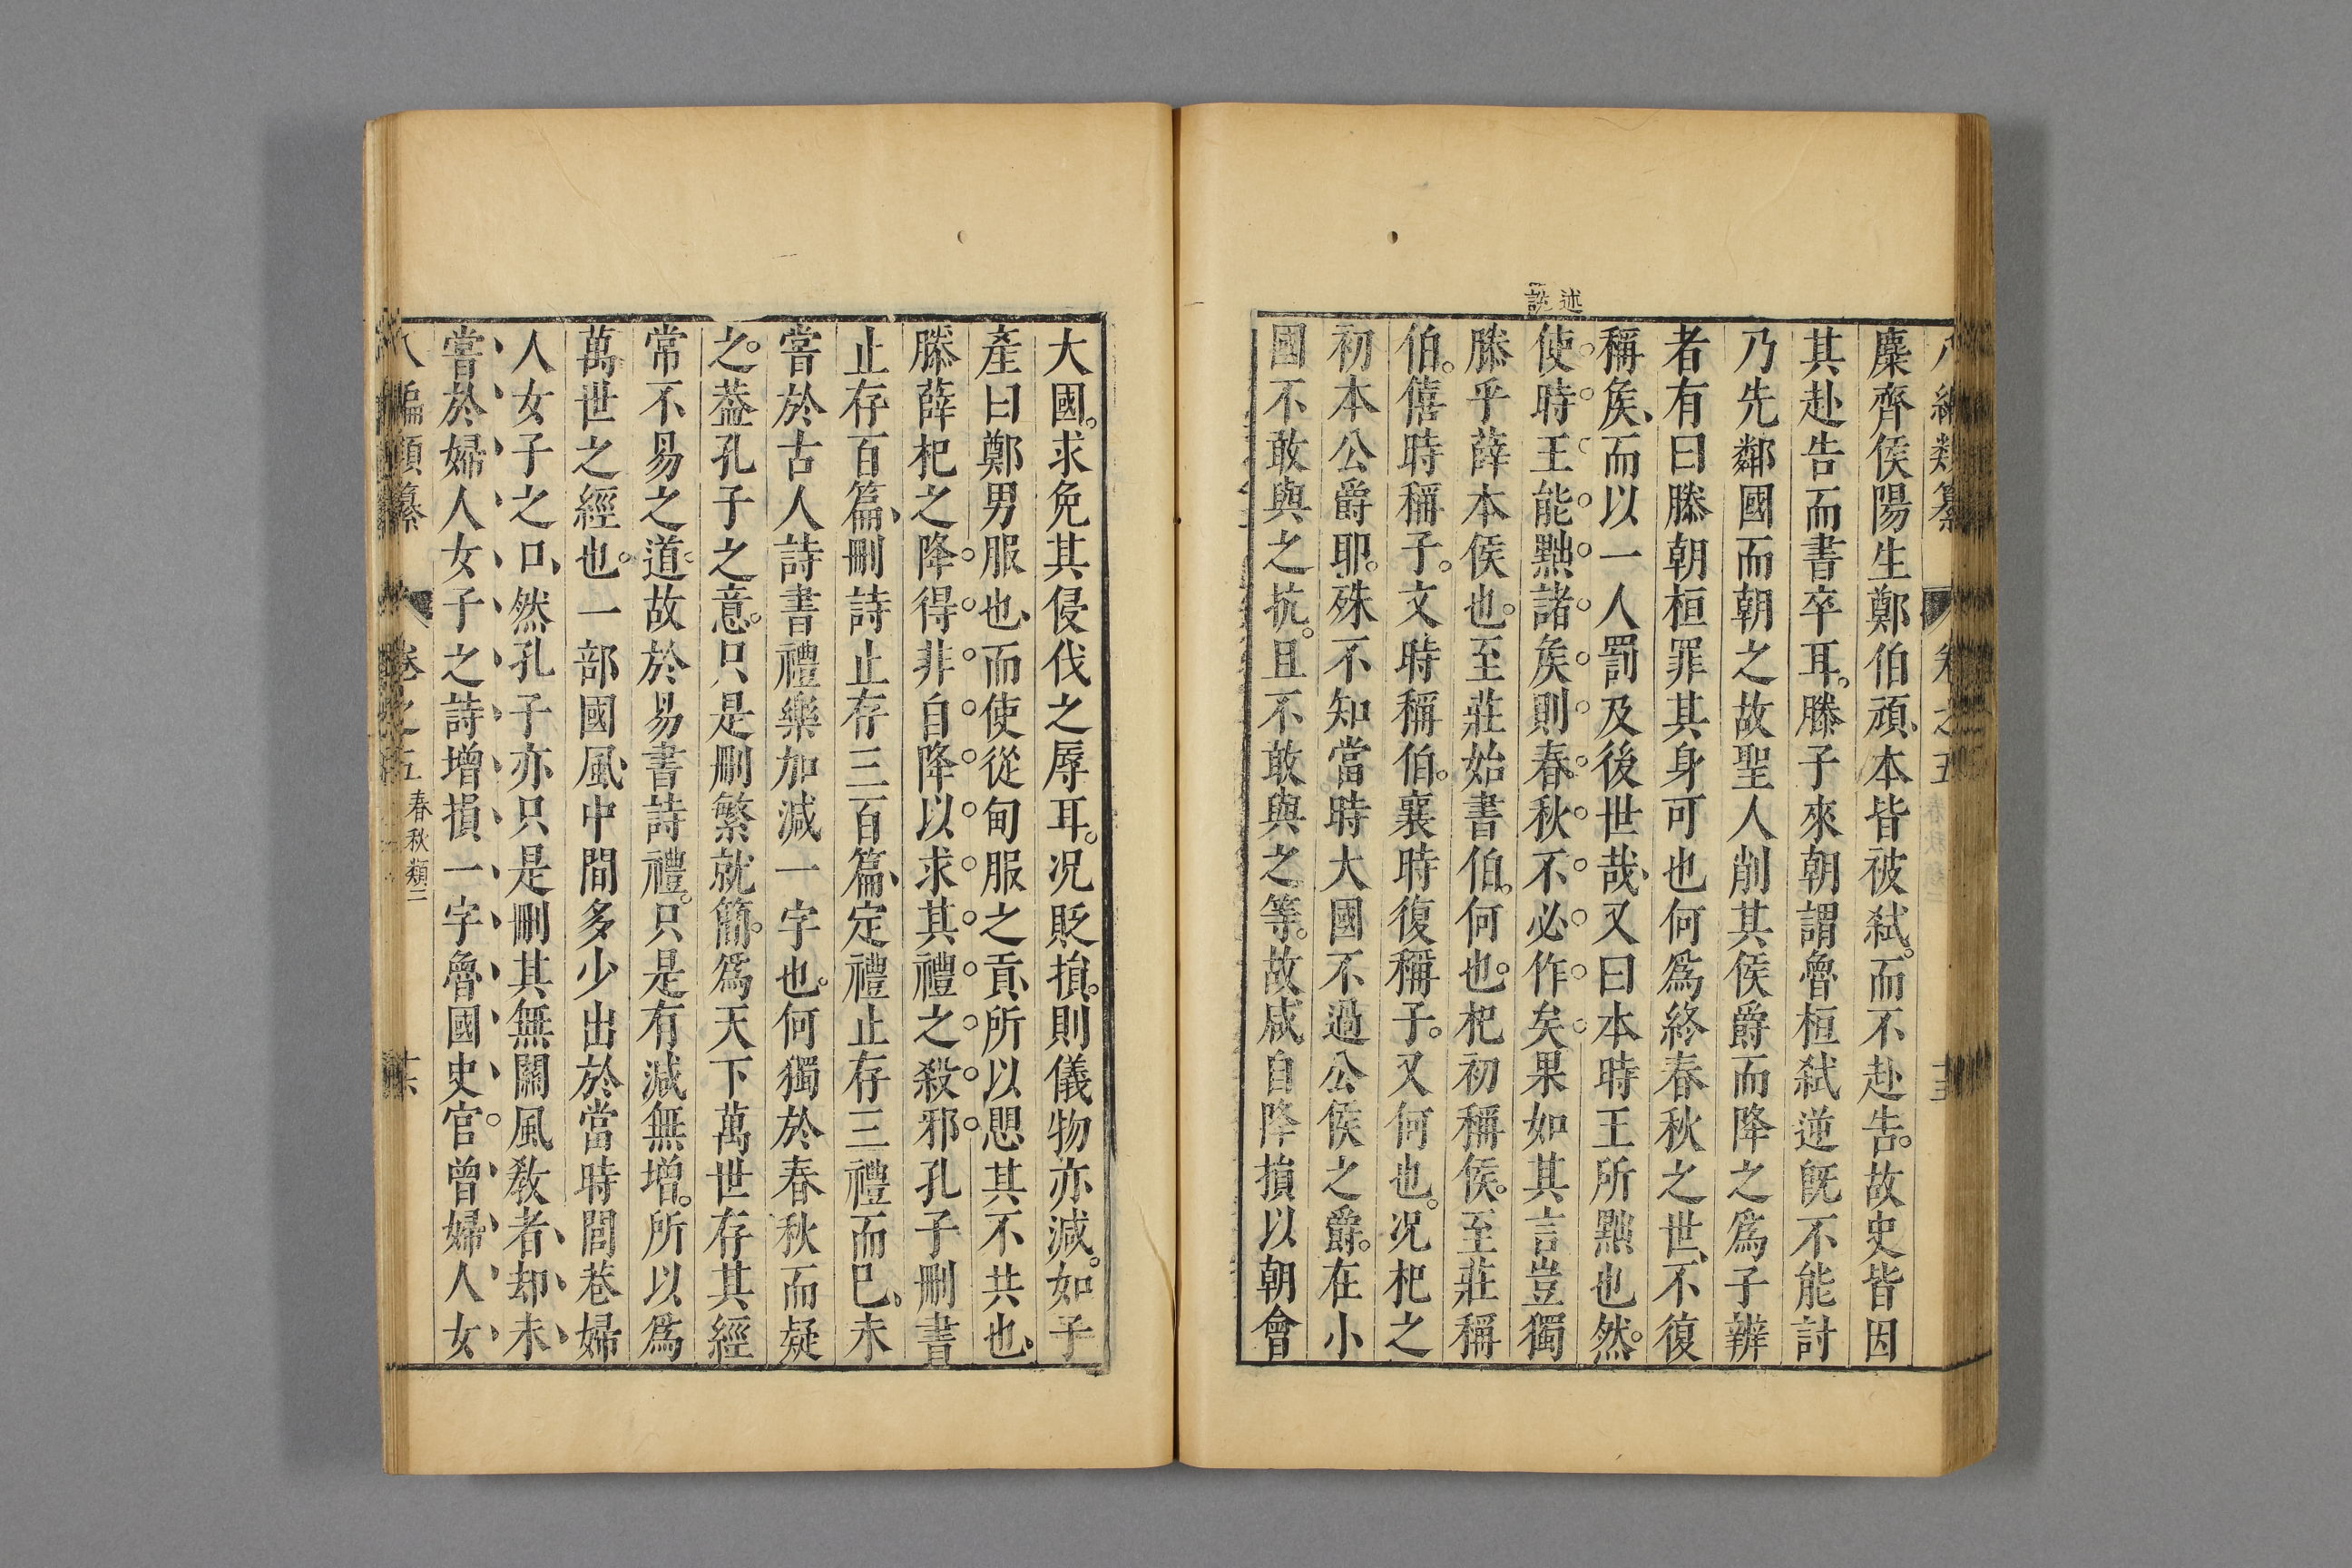 八編類纂 卷之五
麋齊侯陽生鄭伯頑本皆被弑。而不赴告。故史皆因
其赴告而書卒耳。滕子來朝謂魯桓弑逆旣不能討
乃先鄰國而朝之故聖人削其侯爵而降之爲子辨
者有曰滕朝桓罪其身可也何爲終春秋之世、不復
稱矦、而以一人罰及後世哉、又曰本時王所黜也然。
述說
使時王能黜諸矦則春秋不必作矣果如其言豈獨
滕乎薛本侯也。至莊始書伯。何也。杞初稱侯。至莊稱
伯。僖時稱子。文時稱伯。襄時復稱子。又何也。况杞之
初本公爵耶。殊不知當時大國不過公侯之爵。在小
國不敢與之抗。且不敢與之等。故咸自降損以朝會
大國。求免其侵伐之辱耳。况貶損。則儀物亦減。如子
產曰鄭男服也、而使從甸服之貢、所以思其不共也、
滕薛杞之降得非自降以求其禮之殺邪孔子刪書
止存百篇、刪詩止存三百篇、定禮止存三禮而已。未
嘗於古人詩書禮樂加減一字也。何獨於春秋而疑
之。葢孔子之意。只是刪繁就簡。爲天下萬世存其經
常不易之道。故於易書詩禮。只是有減無增。所以爲
萬世之經也。一部國風、中間多少出於當時閭巷婦
人女子之口、然孔子亦只是刪其無關風敎者、却未
嘗於婦人女子之詩增損一字魯國史官。曾婦人女
八編類纂 卷之五 春秋類二 十六